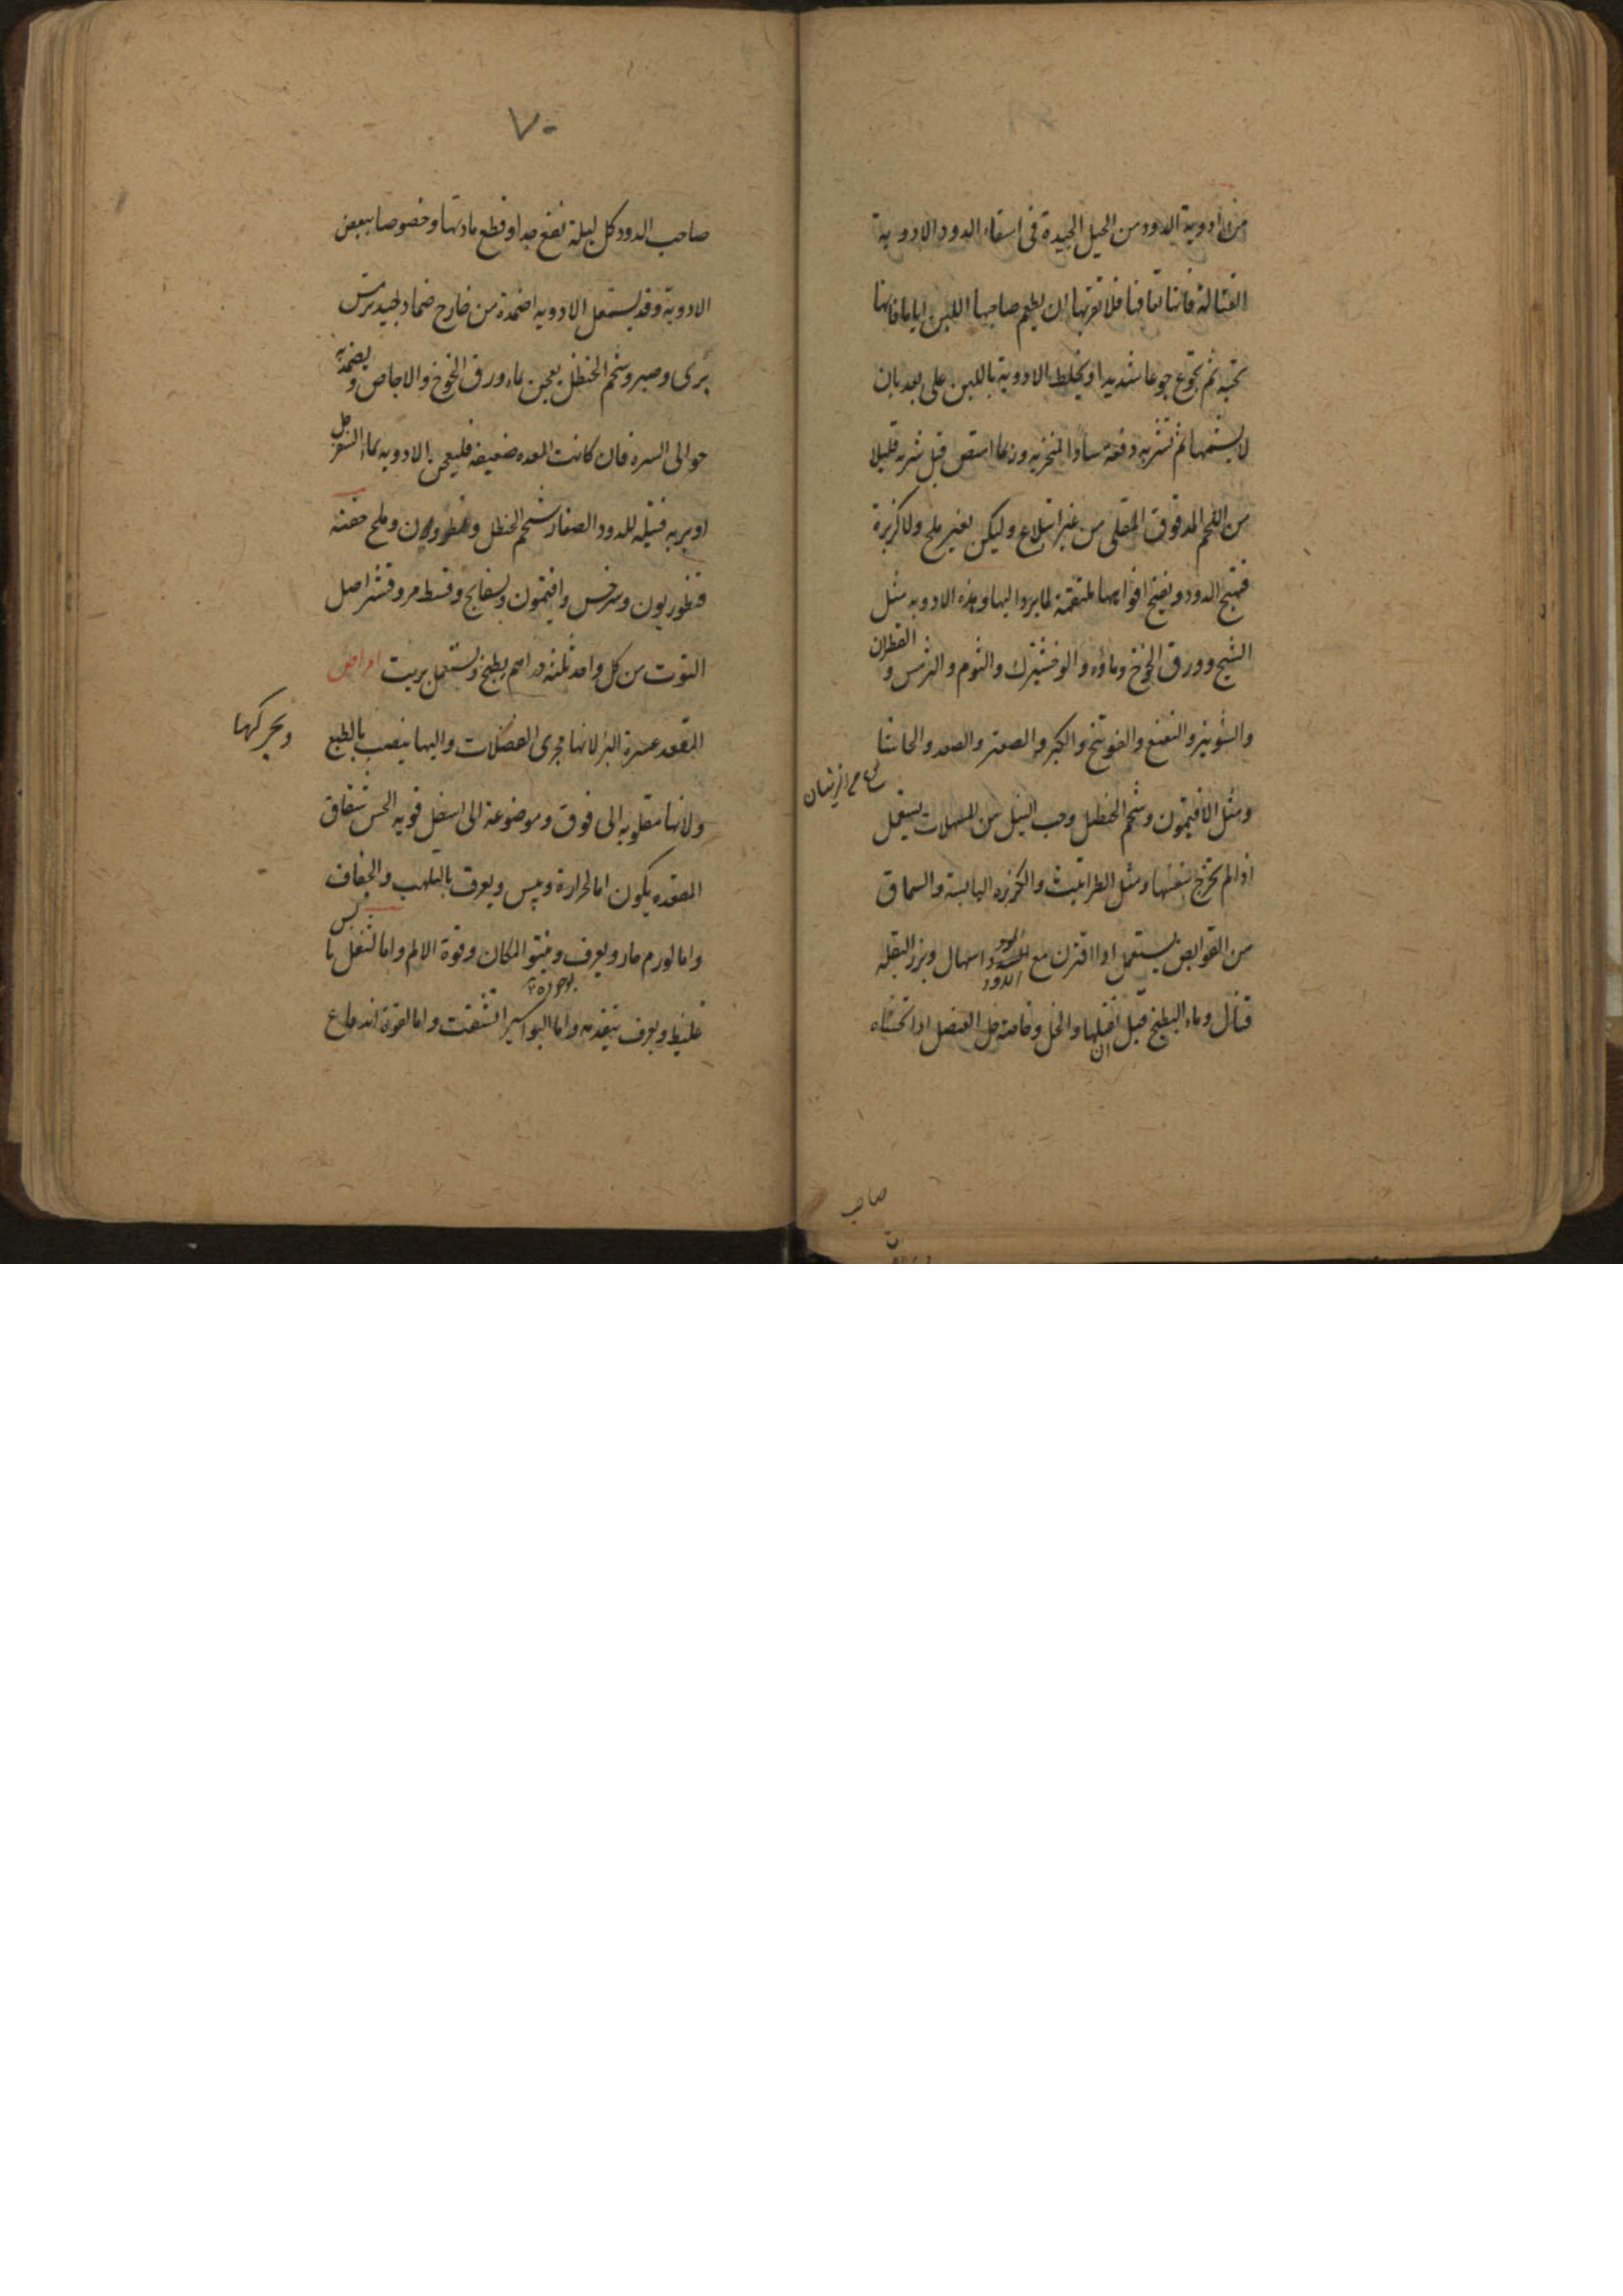 من ادوية الدود من الحيل الجيدة فى اسقاء الدود الادوية
القتالة فانها تعافها فلا تقربها ان يطعم صاحبها اللبن اياما فانها
تحبه ثم تجوع جوعا شديدا و تخلط الادوية باللبن على بعد بان
لا يشمها ثم تشربه دفعة سادا المنخريه وربما امتص قبل شربه قليلا
من اللحم المدقوق المقلى من غير ابتلاع وليكن بغير ملح ولا كزبرة
فتهيج الدود ويفتح افواهها ملتقمة لما يرد اليها وهذه الادويه مثل
الشيح وورق الخوخ وماؤه والوخشيرك والثوم والترمس و القطران
والشونيز والنعنع والفوتنج والكبر والصعتر والصعد والحاشا
ومثل الافيتمون وشحم الحنظل وحب النيل من المسهلات يستعمل
اذا لم تخرج بنفسها ومثل الطراثيث والكزبره اليابسة والسماق
من القوابض يستعمل اذا اقترن مع الدود اسهال وبزر البقله
قتال وماء البطيخ قبل ان تقبلها والخل وخاصة خل العنصل اذا تحساه
صاحب
٧٠
صاحب الدود كل ليلة نفع جدا وقطع مادتها وخصوصا ببعض
الادوية وقد يستعمل الادويه اضمدة من خارج ضماد لجيد ترمس
برى وصبر وشحم الحنظل يعجن بماء ورق الخوخ والاجاص و يضمد به
حوالى السره فان كانت المعده ضعيفه فليعجن الادويه بماء السفرجل
اوبربه فتيله للدود الصغار شحم الحنظل و وملح حقنه
قنطوريون وسرخس وافتيمون وبسفايج وقسط مر وقشر اصل
التوت من كل واحد ثلثه دراهم يطبخ ويستعمل بزيت امراض
المقعد عسرة البرء لانها مجرى الفضلات واليها ينصب بالطبع
ويحركها
ولانها مقلوبه الى فوق وموضوعة الى اسفل قويه الحس شقاق
المقعده يكون اما لحرارة ويبس ويعرف بالتلهب والجفاف
واما لورم حار ويعرف ونتو المكان وقوة الالم واما لثفل يابس
غليظ ويعرف بتقدمه واما البواسير انشقت واما لقوة اندفاع